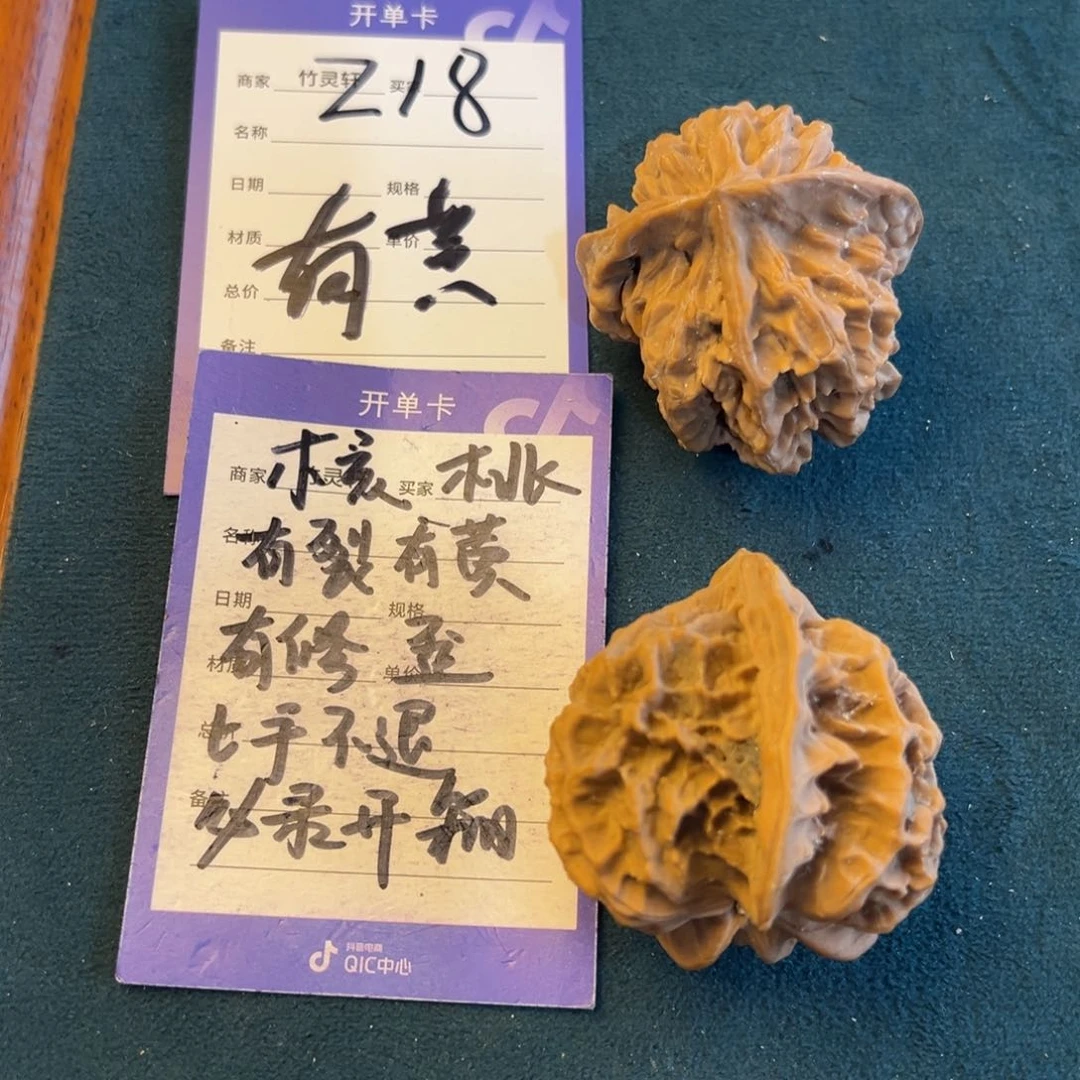 开单卡
商家 竹灵轩 买家
Z18
名称
日期 规格
有黄
材质 单价
总价
备注
开单卡
商家 买家
核桃
名称
有裂有黄
日期 规格
有修歪
材质 单价
上手不退
备注
必录开翻
抖音电商
QIC中心